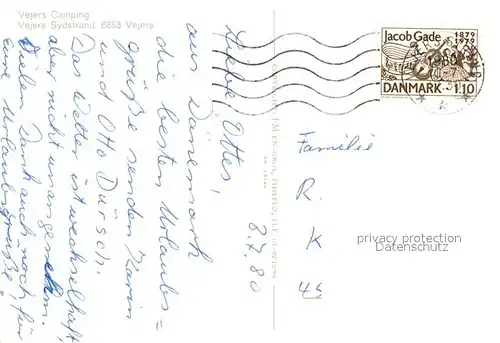 Vejers Camping
Vejers Sydstrand 6853 Vejers
Jacob Gade 1879
1979
1980
DANMARK 1.10
8.7.80
Liebe Ottes,
aus Dänemark
die besten Urlaubs=
grüße senden Karin
und Otto Dürsch.
Das Wetter ist wechselhaft
aber nicht unangenehm.
Vielen Dank auch noch für
eure Urlaubsgrüße!
Familie
R.
K
45
privacy protection
Datenschutz